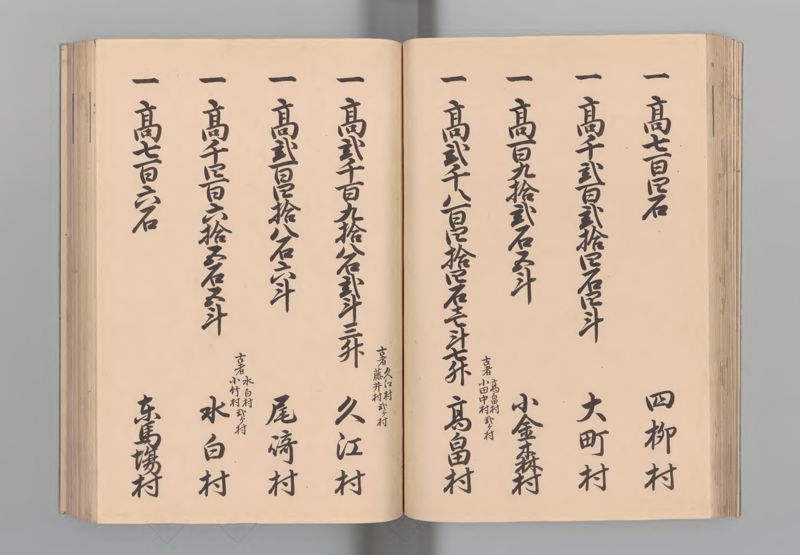 一高七百四石 四柳村
一高千弐百弐拾四石四斗 大町村
一高百九拾弐石五斗 小金森村
古者高畠村小田中村弐ケ村
一高弐千八百四拾四石壱斗七升 高畠村
古者久江村藤井村弐ケ村
一高弐千百九拾八石弐斗三升 久江村
一高弐百四拾八石六斗 尾崎村
古者水白村小竹村弐ケ村
一高千四百六拾五石五斗 水白村
一高七百六石 東馬場村